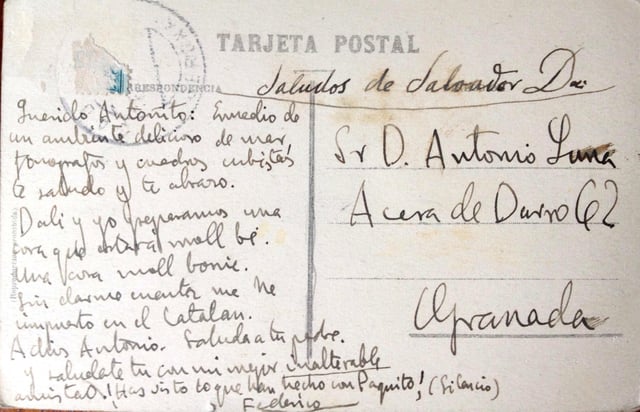 TARJETA POSTAL
RRESPONDENCIA
Saludos de Salvador Dalí
Querido Antonito: Enmedio de
un ambiente delicioso de mar,
fonografos y cuadros cubistas
te saludo y te abrazo.
Dalí y yo preparamos una
cosa que estará moll bé.
Una cosa moll bonic.
Sin darme cuenta me he
impuesto en el Catalan.
Adios Antonio. Saluda a tu padre.
y saludate tu con mi mejor inalterable
amistad. ¡Has visto lo que han hecho con Paquito! (Silencio)
Federico
Sr D. Antonio Luna
Acera de Darro 62
Granada